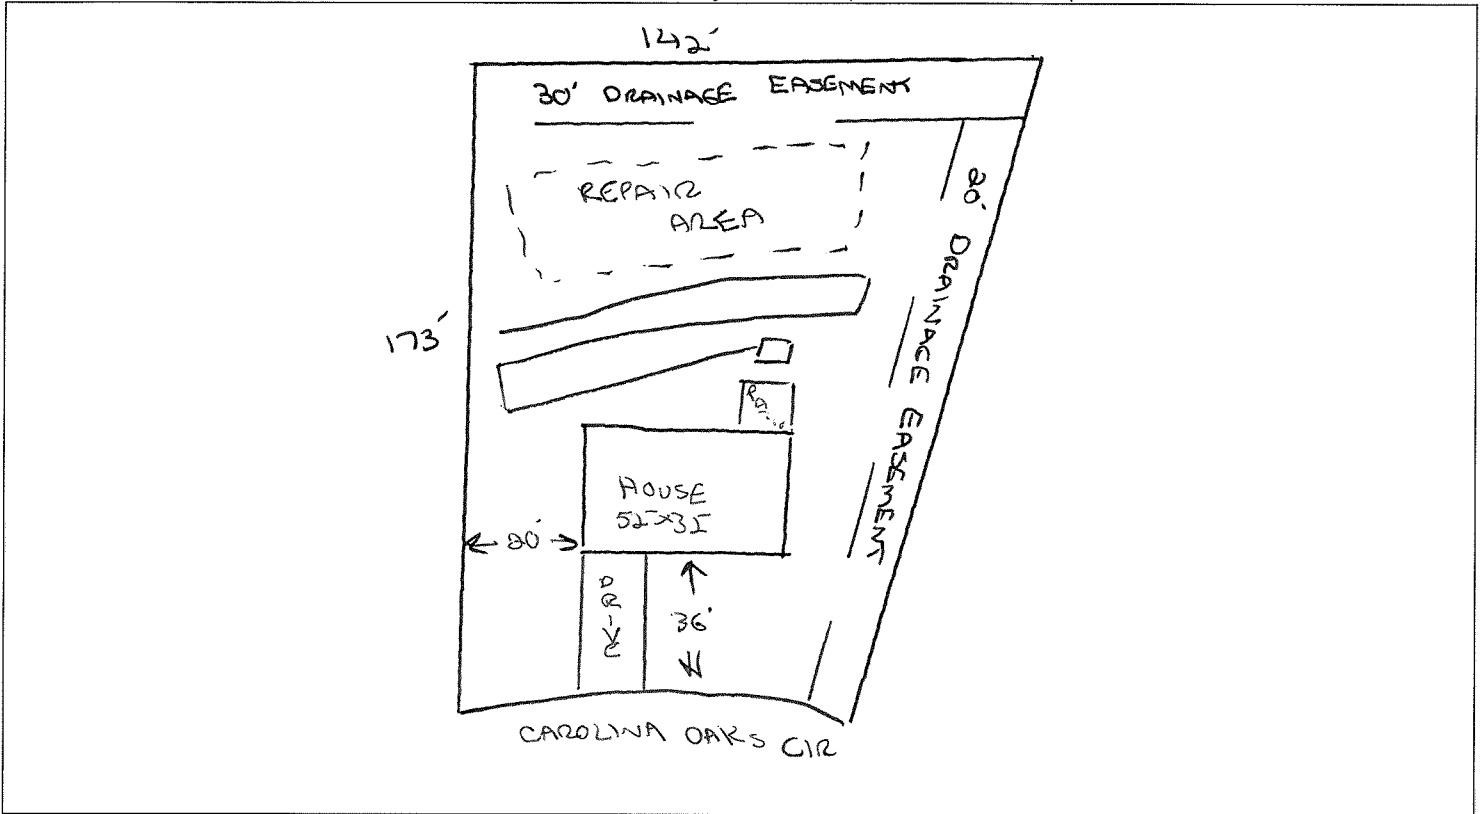 142'
30' DRAINAGE EASEMENT
REPAIR
AREA
20' DRAINAGE EASEMENT
173'
HOUSE
20'
DRIVE
36'
CAROLINA OAKS CIR